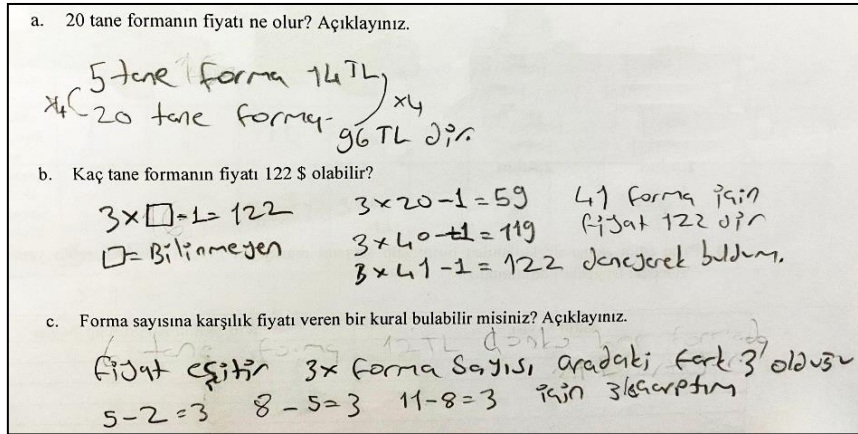 a. 20 tane formanın fiyatı ne olur? Açıklayınız.
5 tane forma 14 TL
x4 x4
20 tane forma- 96 TL dir.
b. Kaç tane formanın fiyatı 122 $ olabilir?
3x□-1= 122
□= Bilinmeyen
3x20-1=59
3x40-1=119
3x41-1=122
41 forma için
fiyat 122 dir
deneyerek buldum.
c. Forma sayısına karşılık fiyatı veren bir kural bulabilir misiniz? Açıklayınız.
fiyat eşittir 3x forma sayısı, aradaki fark 3 olduğu
5-2=3 8-5=3 11-8=3 için 3'le çarptım